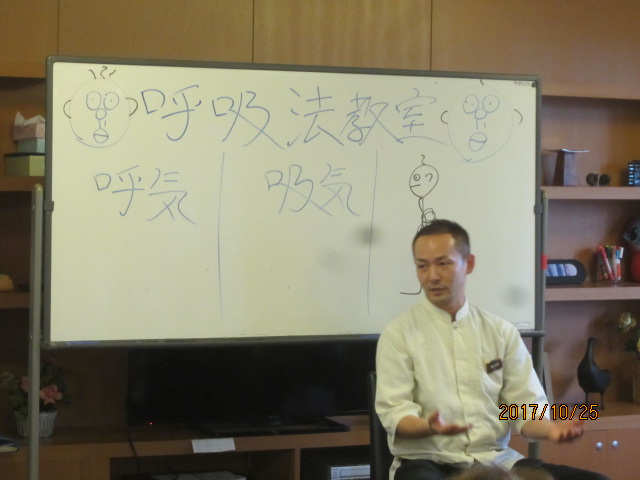 呼吸法教室
呼気 吸気
2017/10/25